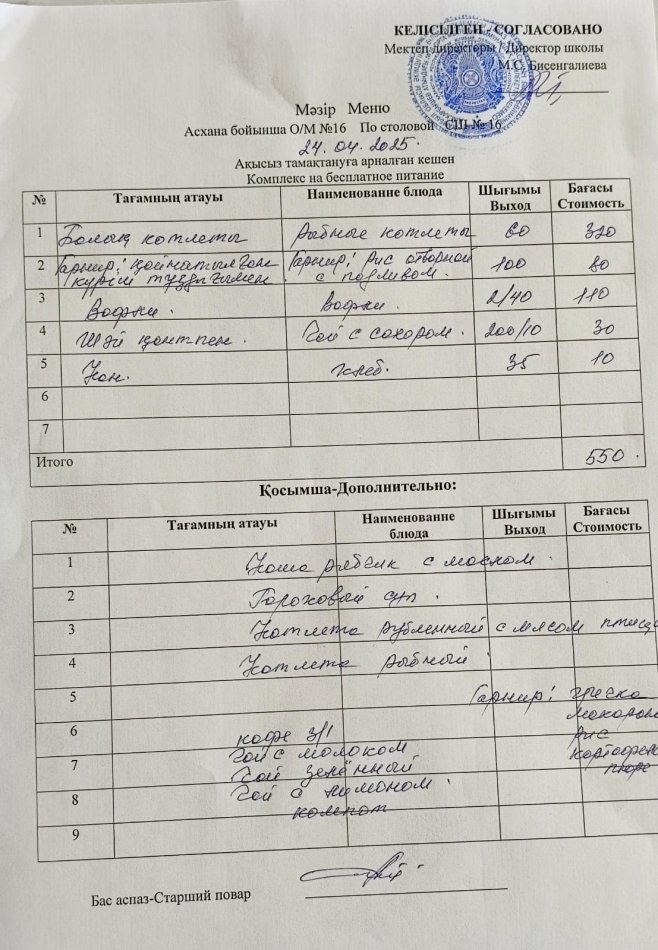 КЕЛІСІЛГЕН / СОГЛАСОВАНО
Мектеп директоры / Директор школы
М.С. Бисенгалиева
Мәзір Меню
Асхана бойынша О/М №16 По столовой СШ № 16
24.04.2025.
Ақысыз тамақтануға арналған кешен
Комплекс на бесплатное питание
№ Тағамның атауы Наименование блюда Шығымы Выход Бағасы Стоимость
1 Болық котлеты Рыбные котлеты 60 320
2 Гарнир: қойнатылған күріш тұздығымен. Гарнир: рис отворной с подливом. 100 80
3 Вофли. Вофли. 2/40 110
4 Шәй қонтпен. Чой с сохором. 200/10 30
5 Нон. Хлеб. 35 10
6
7
Итого 550.
Қосымша-Дополнительно:
№ Тағамның атауы Наименование блюда Шығымы Выход Бағасы Стоимость
1 Коша с мослом.
2 Гороховый суп.
3 Котлета рубленный с мясом птицы
4 Котлета рыбный.
5 Гарнир: гречко
мокорон
6 кофе 3/1 рис
чой с молоком картофель
7 Чой зелённый пюре
8 Чой с лимоном.
компот
9
Бас аспаз-Старший повар